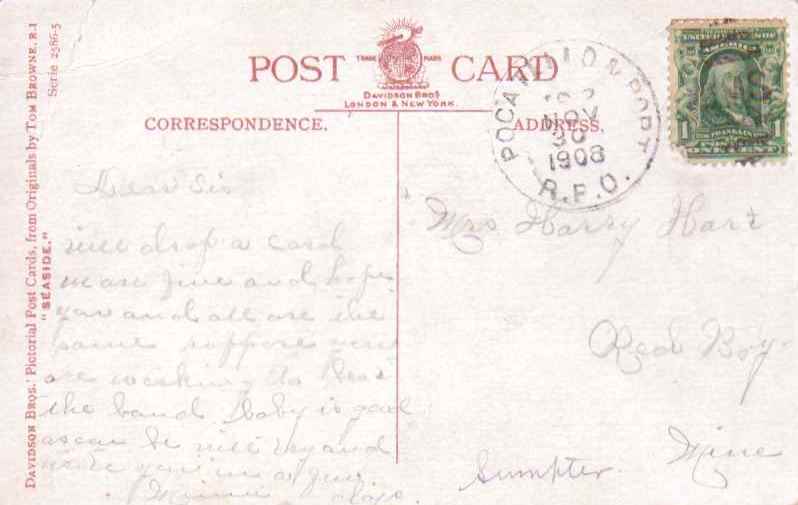 POST CARD
TRADE MARK
DAVIDSON BROS
LONDON & NEW YORK.
CORRESPONDENCE.
ADDRESS.
DAVIDSON BROS.' Pictorial Post Cards, from Originals by TOM BROWNE, R.I
Serie 2586-5
"SEASIDE."
NOV
30
1908
R.P.O.
UNITED STATES OF AMERICA
1 FRANKLIN 1
ONE CENT
Dear Sis
will drop a card
we are fine and hope
you and all are the
same suppose you
are working to beat
the band Baby is good
as can be will try and
write you in a few
days.
Minnie
Mrs Harry Hart
Red Boy
Mine
Sumpter.